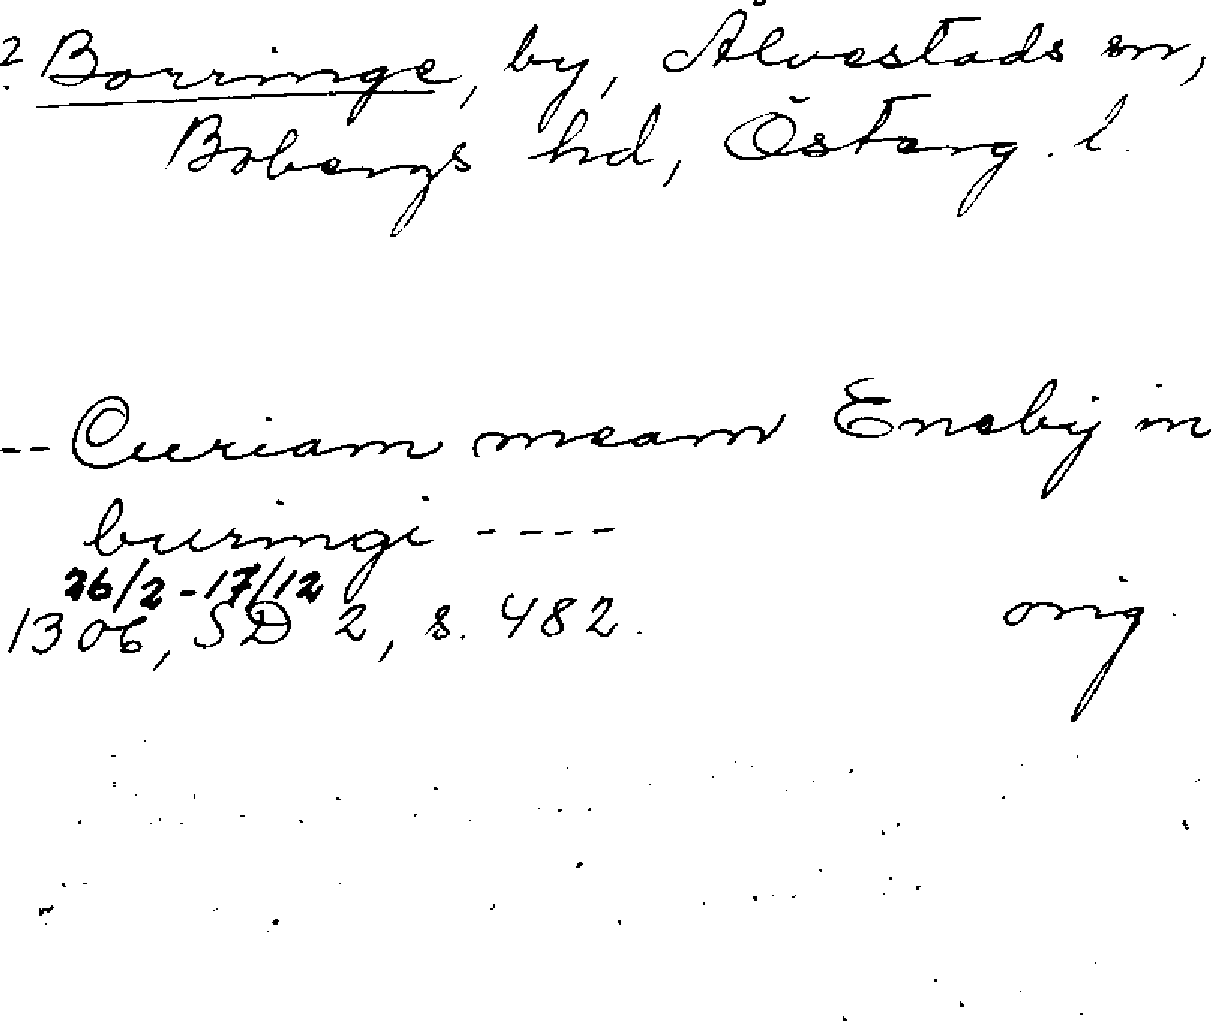 ? Borringe, by, Ålvestads sn,
Bobergs hd, Österg. l.
-- Curiam meam Eneby in
buringi ----
26/2 - 17/12
1306, SD 2, s. 482. orig.